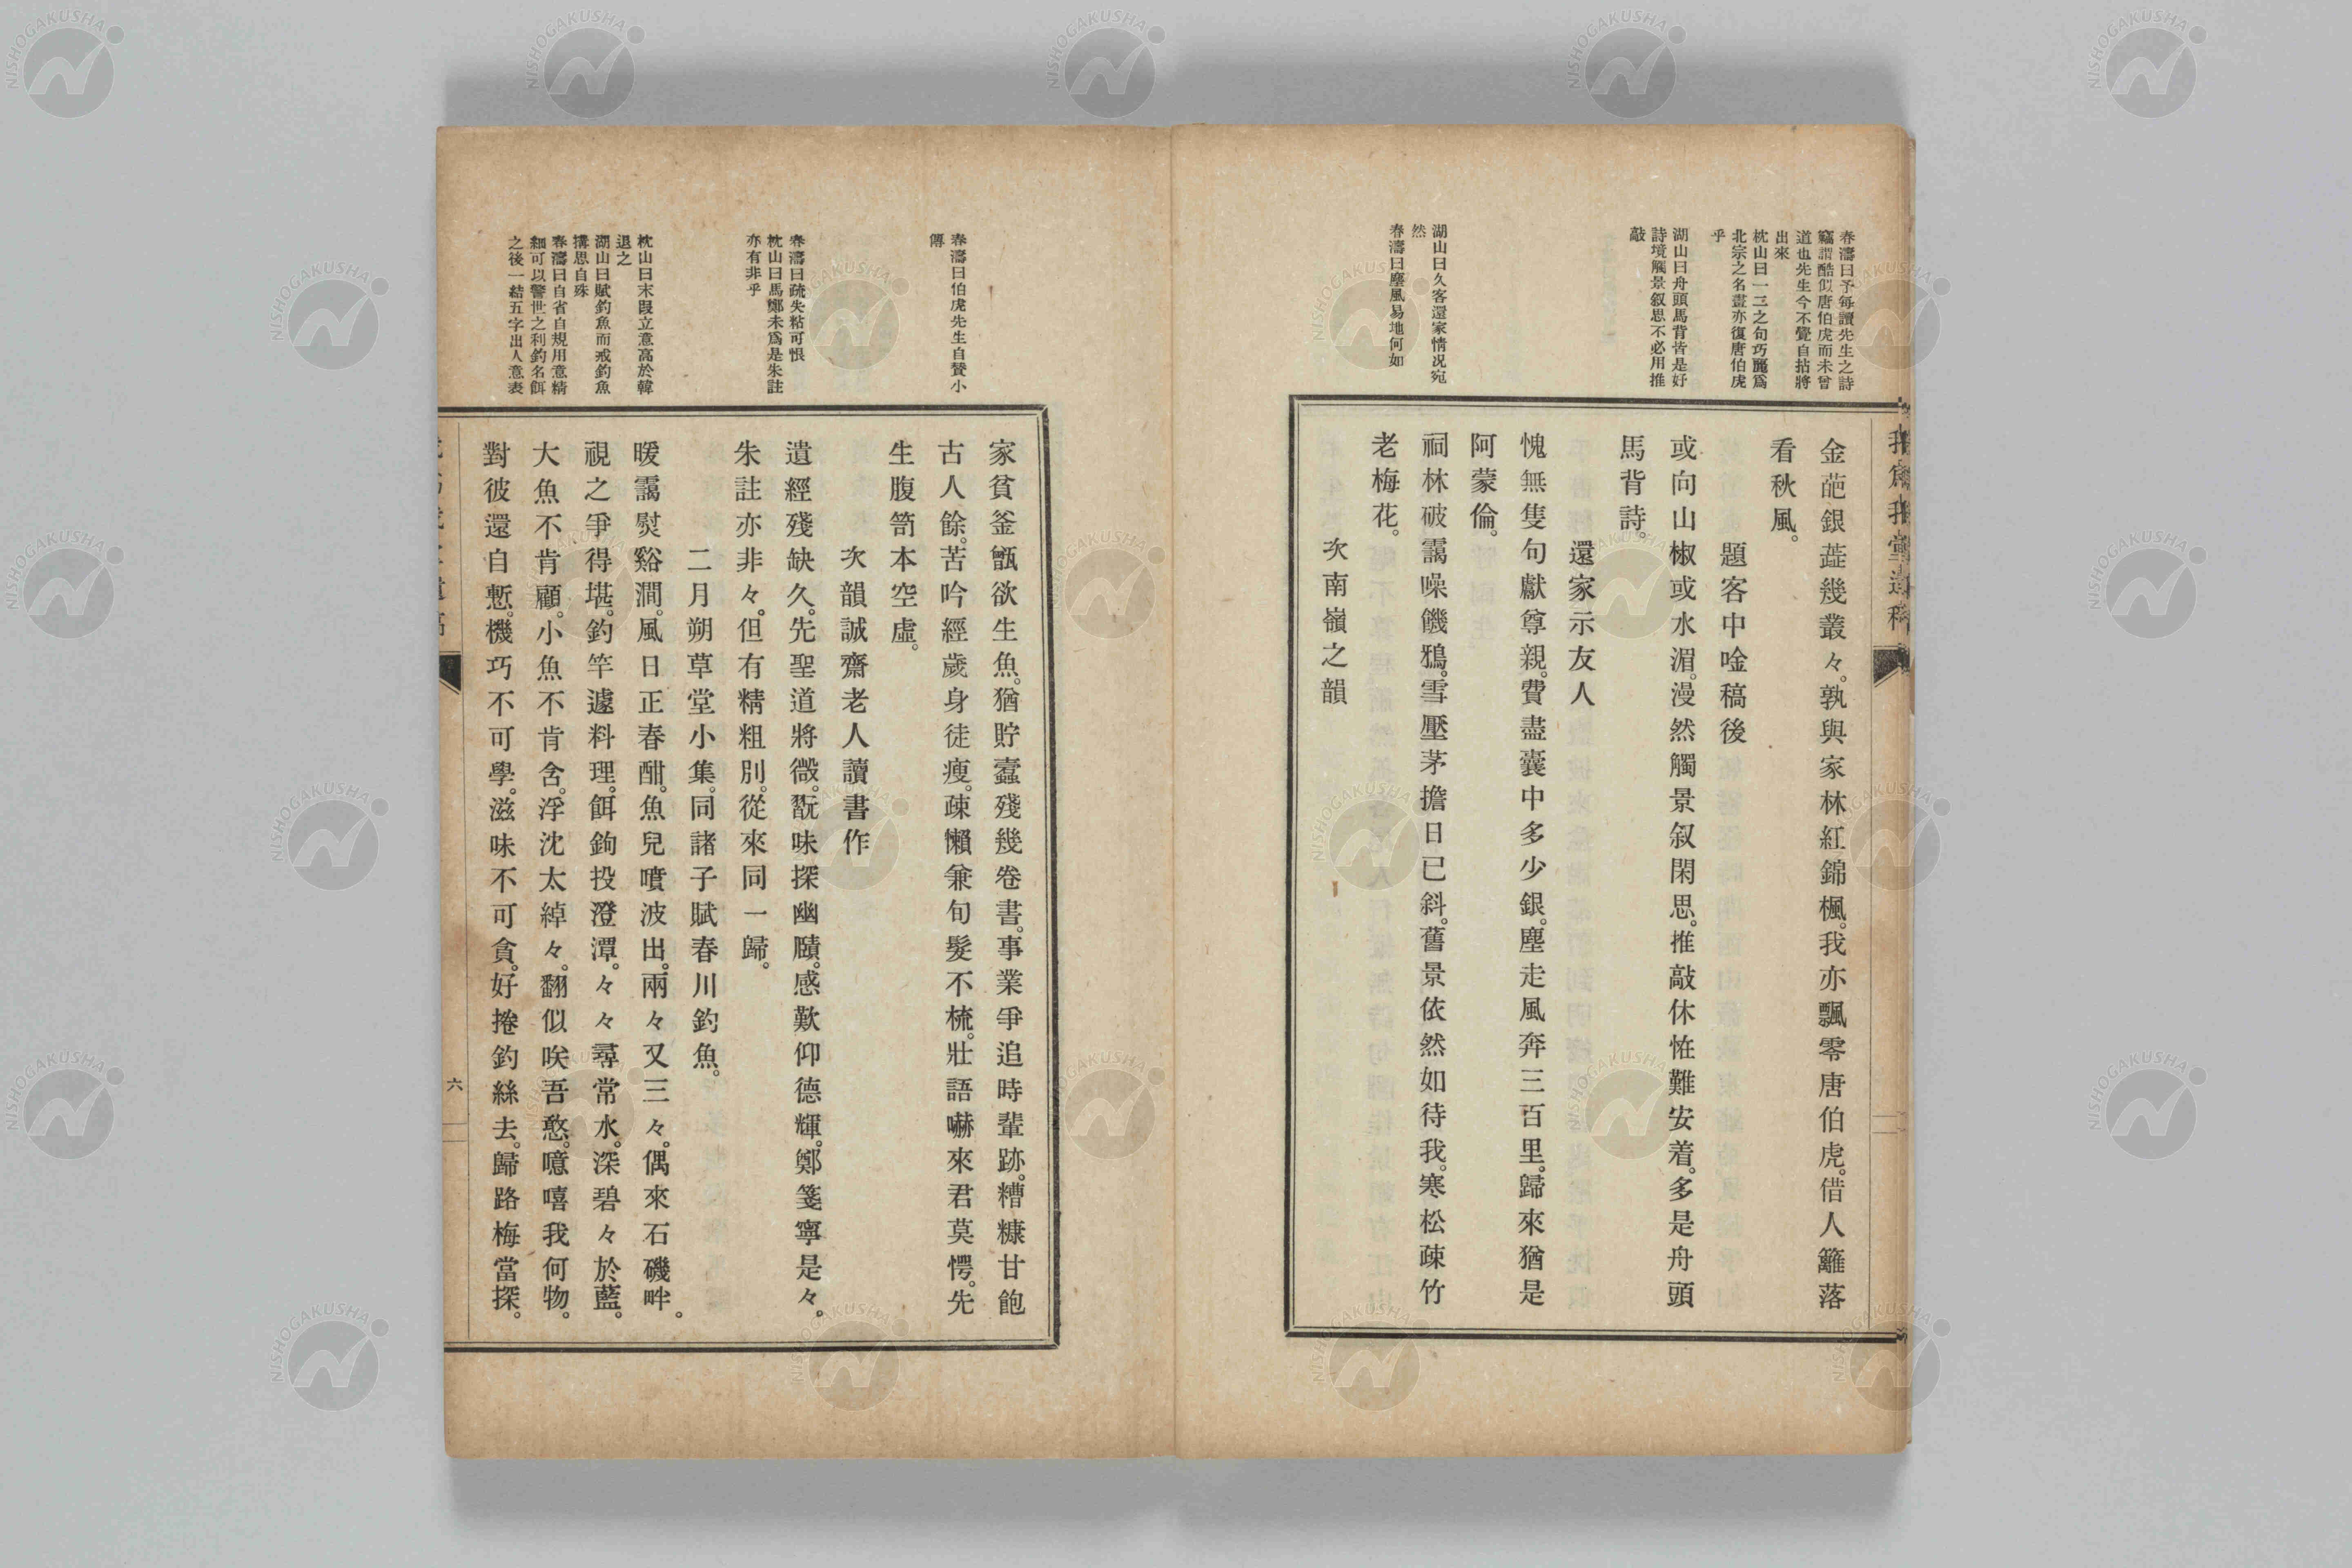 春濤曰予每讀先生之詩
竊謂酷似唐伯虎而未曾
道也先生今不覺自拈將
出來
枕山曰一二之句巧麗爲
北宗之名畫亦復唐伯虎
乎
湖山曰舟頭馬背皆是好
詩境觸景叙思不必用推
敲
湖山曰久客還家情况宛
然
春濤曰塵風易地何如
金葩銀蘂幾叢々。孰與家林紅錦楓。我亦飄零唐伯虎。借人籬落
看秋風。
題客中唫稿後
或向山椒或水湄。漫然觸景叙閑思。推敲休恠難安着。多是舟頭
馬背詩。
還家示友人
愧無隻句獻尊親。費盡囊中多少銀。塵走風奔三百里。歸來猶是
阿蒙倫。
祠林破靄噪饑鴉。雪壓茅擔日已斜。舊景依然如待我。寒松疎竹
老梅花。
次南嶺之韻
春濤曰伯虎先生自贊小
傳
春濤曰疏失粘可恨
枕山曰馬鄭未爲是朱註
亦有非乎
枕山曰末段立意高於韓
退之
湖山曰賦釣魚而戒釣魚
搆思自殊
春濤曰自省自規用意精
細可以警世之利釣名餌
之後一結五字出人意表
家貧釜甑欲生魚。猶貯蠹殘幾卷書。事業爭追時輩跡。糟糠甘飽
古人餘。苦吟經歲身徒瘦。疎懶兼旬髮不梳。壯語嚇來君莫愕。先
生腹笥本空虛。
次韻誠齋老人讀書作
遺經殘缺久。先聖道將微。翫味探幽賾。感歎仰德輝。鄭箋寧是々。
朱註亦非々。但有精粗別。從來同一歸。
二月朔草堂小集。同諸子賦春川釣魚。
暖靄熨谿澗。風日正春酣。魚兒噴波出。兩々又三々。偶來石磯畔。
視之爭得堪。釣竿遽料理。餌鉤投澄潭。々々尋常水。深碧々於藍。
大魚不肯顧。小魚不肯含。浮沈太綽々。翻似咲吾憨。噫嘻我何物。
對彼還自慙。機巧不可學。滋味不可貪。好捲釣絲去。歸路梅當探。
六
NISHOGAKUSHA